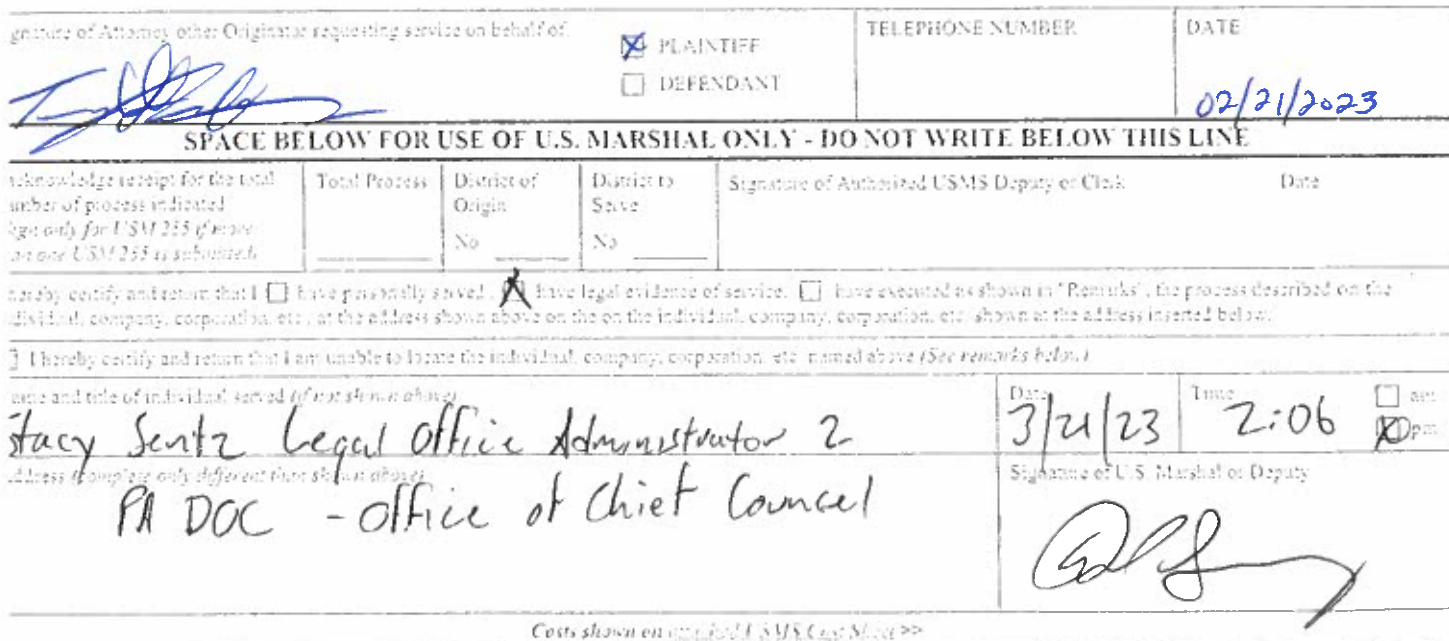 gnature of Attorney other Originator requesting service on behalf of:
PLAINTIFF
DEFENDANT
TELEPHONE NUMBER
DATE
02/21/2023
SPACE BELOW FOR USE OF U.S. MARSHAL ONLY - DO NOT WRITE BELOW THIS LINE
acknowledge receipt for the total
umber of process indicated
ign only for USM 285 if more
an one USM 285 is submitted)
Total Process
District of
Origin
No
District to
Serve
No
Signature of Authorized USMS Deputy or Clerk
Date
hereby certify and return that I have personally served, have legal evidence of service, have executed as shown in "Remarks", the process described on the
dividual, company, corporation, etc., at the address shown above on the on the individual, company, corporation, etc. shown at the address inserted below.
I hereby certify and return that I am unable to locate the individual, company, corporation, etc. named above (See remarks below)
ame and title of individual served (if not shown above)
Stacy Sentz Legal Office Administrator 2
Date
3/21/23
Time
2:06
am
pm
ddress (complete only different than shown above)
PA DOC - Office of Chief Councel
Signature of U.S. Marshal or Deputy
Costs shown on attached USMS Cost Sheet >>